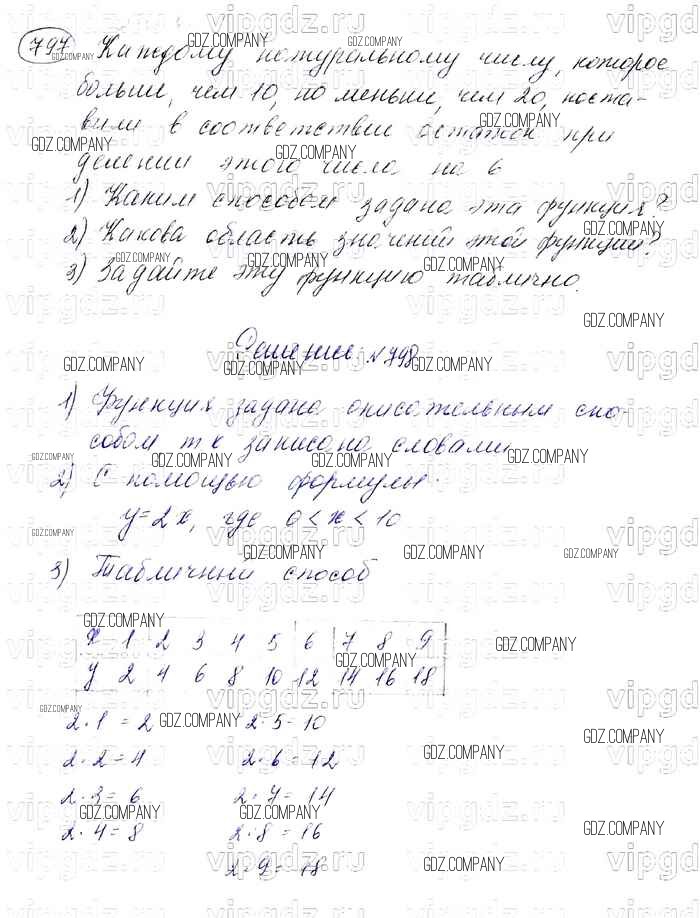 797 Каждому натуральному числу, которое
больше, чем 10, но меньше, чем 20, поста-
вили в соответствии остаток при
делении этого числа на 6
1) Каким способом задана эта функция?
2) Какова область значений этой функции?
3) Задайте эту функцию таблично.
Решение №798
1) Функция задана описательным спо-
собом т к записана словами
2) С помощью формулы.
y=2x, где 0<x<10
3) Табличный способ
x 1 2 3 4 5 6 7 8 9
y 2 4 6 8 10 12 14 16 18
2·1=2 2·5=10
2·2=4 2·6=12
2·3=6 2·7=14
2·4=8 2·8=16
2·9=18
GDZ.COMPANY
vipgdz.ru